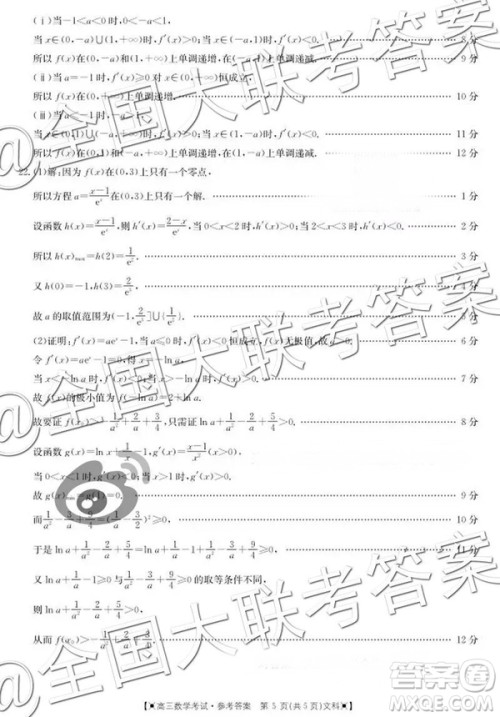 (ⅰ)当-1<a<0时,0<-a<1,
当x∈(0,-a)∪(1,+∞)时,f'(x)>0;当x∈(-a,1)时,f'(x)<0.
所以f(x)在(0,-a)和(1,+∞)上单调递增,在(-a,1)上单调递减. 9分
(ⅱ)当a=-1时,f'(x)≥0对x∈(0,+∞)恒成立,
所以f(x)在(0,+∞)上单调递增. 10分
(ⅲ)当a<-1时,-a>1,
当x∈(0,1)∪(-a,+∞)时,f'(x)>0;当x∈(1,-a)时,f'(x)<0. 11分
所以f(x)在(0,1)和(-a,+∞)上单调递增,在(1,-a)上单调递减. 12分
22.(1)解:因为f(x)在(0,3)上只有一个零点,
所以方程a=(x-1)/e^x在(0,3)上只有一个解. 1分
设函数h(x)=(x-1)/e^x,则h'(x)=(2-x)/e^x,当0<x<2时,h'(x)>0;当2<x<3时,h'(x)<0. 2分
所以h(x)max=h(2)=1/e². 3分
又h(0)=-1,h(3)=2/e³, 4分
故a的取值范围为(-1,2/e³]∪{1/e²}.
(2)证明:f'(x)=ae^x-1,当a≤0时,f'(x)<0恒成立,f(x)无极值,故a>0.
令f'(x)=ae^x-1=0,得x=-ln a.
当x<-ln a时,f'(x)<0;当x>-ln a时,f'(x)>0,
故f(x)的极小值为f(-ln a)=2+ln a.
故要证f(x₀)>-1/a²+2/a+3/4,只需证ln a+1/a²-2/a+5/4>0. 8分
设函数g(x)=ln x+1/x-1,g'(x)=(x-1)/x²(x>0),
当0<x<1时,g'(x)<0;当x>1时,g'(x)>0.
故g(x)min=g(1)=0. 9分
而1/a²-3/a+9/4=(1/a-3/2)²≥0, 10分
于是ln a+1/a²-2/a+5/4=ln a+1/a-1+1/a²-3/a+9/4≥0. 11分
又ln a+1/a-1≥0与1/a²-3/a+9/4≥0的取等条件不同,
则ln a+1/a²-2/a+5/4>0,
从而f(x₀)>-1/a²+2/a+3/4. 12分
【高三数学考试·参考答案 第5页(共5页)文科】
@全国大联考答案
@全国大联考答案
答案圈
MXQE.COM